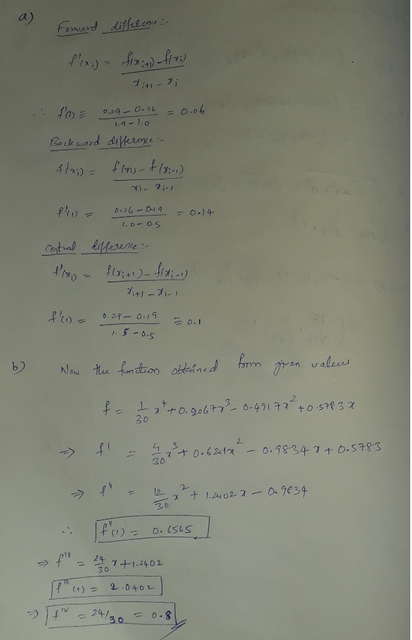 a)
Forward difference:-
f'(xi) = f(xi+1) - f(xi)
xi+1 - xi
∴ f'(1) = 0.29 - 0.26 = 0.06
1.5 - 1.0
Backward difference:-
f'(xi) = f(xi) - f(xi-1)
xi - xi-1
f'(1) = 0.26 - 0.19 = 0.14
1.0 - 0.5
Central difference:-
f'(xi) = f(xi+1) - f(xi-1)
xi+1 - xi-1
f'(1) = 0.29 - 0.19 = 0.1
1.5 - 0.5
b) Now the function obtained from given values
f = 1/30 x⁴ + 0.2067x³ - 0.4917x² + 0.5783x
⇒ f' = 4/30 x³ + 0.6201x² - 0.9834x + 0.5783
⇒ f'' = 12/30 x² + 1.2402x - 0.9834
∴ f''(1) = 0.6565
⇒ f''' = 24/30 x + 1.2402
f'''(1) = 2.0402
⇒ f'ⱽ = 24/30 = 0.8